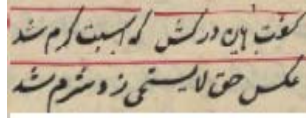 گفت هین درکش که اسبت گرم شد
عکس حق لا یستحی زو شرم شد